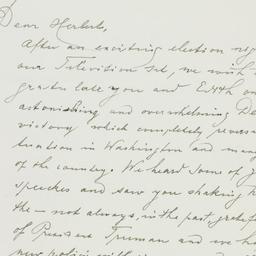 Dear Herbert,
After an exciting election nig
our Television set, we wish t
gratulate you and Edith on
astonishing and overwhelming De
victory which completely reverse
tuation in Washington and many
of the country. We heard some of y
speeches and saw you shaking h
the — not always, in the past, gratef
of President Truman and we ha
new